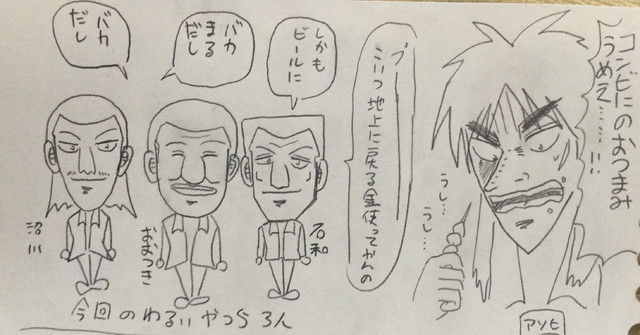 コンビにのおつまみ
うめえ……!!
うし…
うし…
アソヒ
プ
こいつ地上に戻る金使ってかんの
しかも
ビールに
バカ
まる
だし
バカ
だし
石和
おおつき
沼川
今回のわるいやつら3人